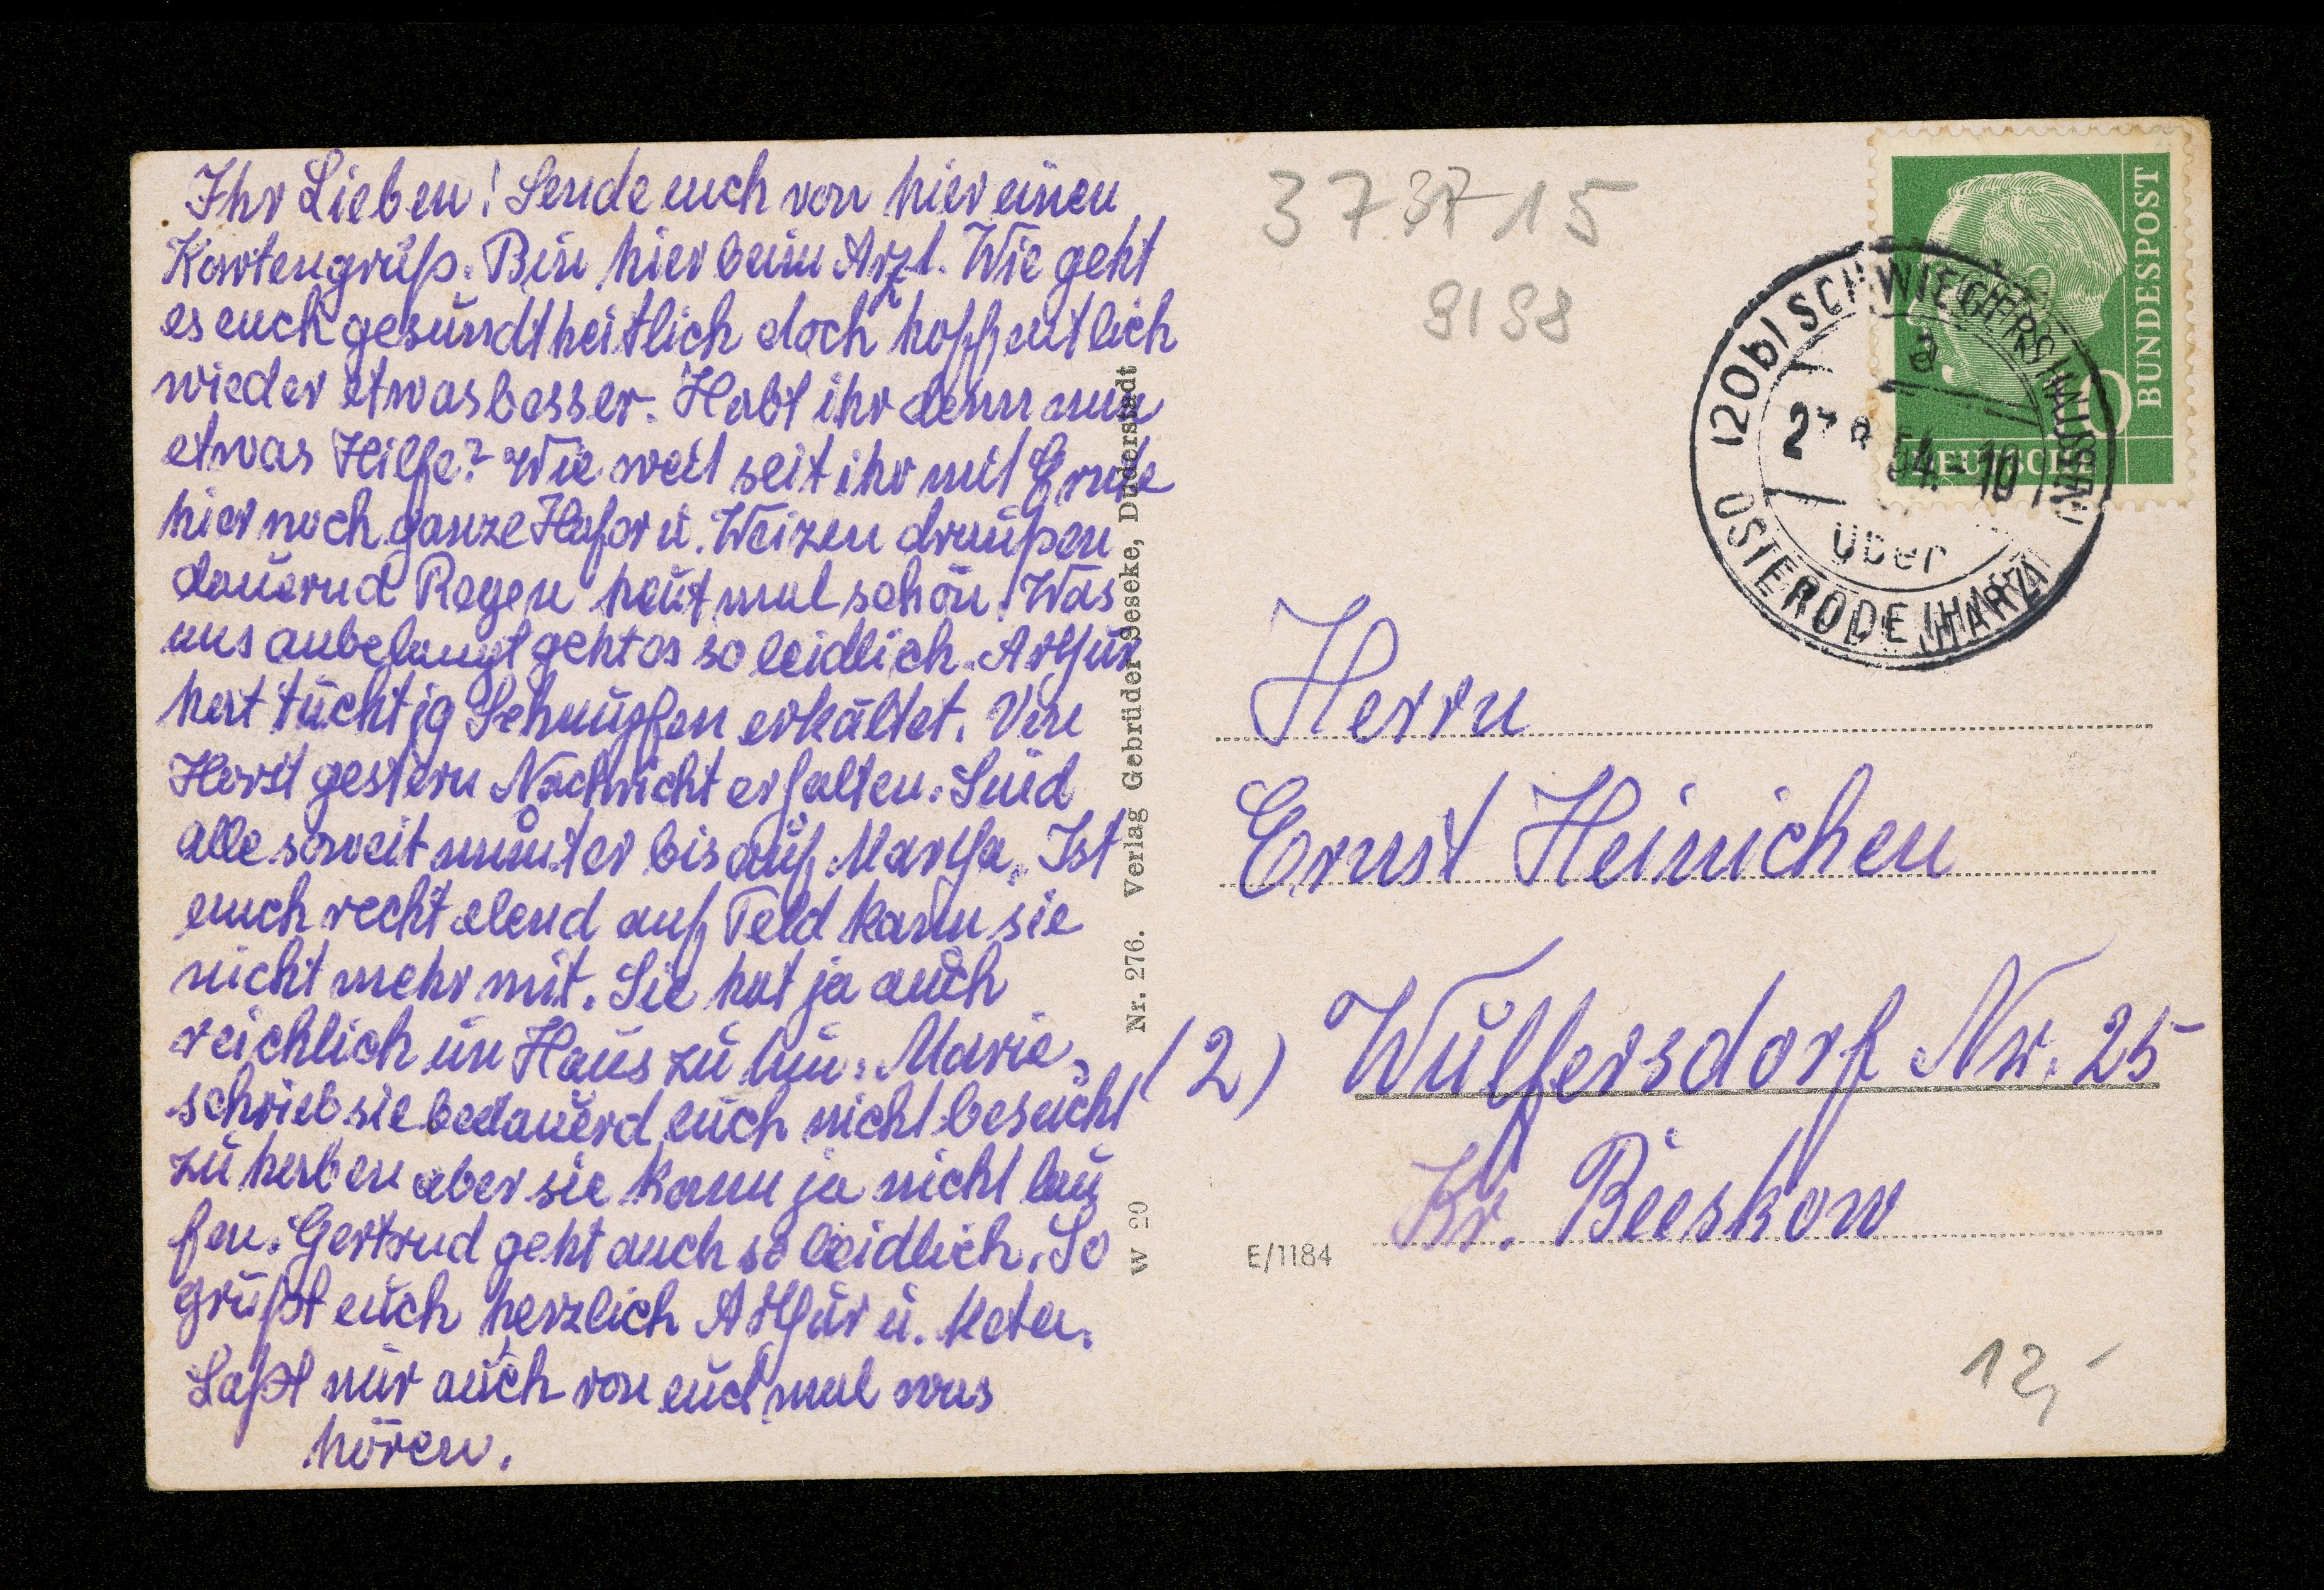 Ihr Lieben! Sende euch von hier einen
Kartengruß. Bin hier beim Arzt. Wie geht
es euch gesundtheitlich doch hoffentlich
wieder etwas besser. Habt ihr denn nun
etwas Hilfe? Wie weit seit ihr mit Ernte
hier noch ganze Hafer u. Weizen draußen
dauernd Regen heut mal schön. Was
uns anbelangt geht es so leidlich. Arthur
hat tüchtig Schnupfen erkältet. Von
Horst gestern Nachricht erhalten. Sind
alle soweit munter bis auf Martha. Ist
auch recht elend auf Feld kann sie
nicht mehr mit. Sie hat ja auch
reichlich im Haus zu tun. Marie
schrieb sie bedauerd euch nicht besucht
zu haben aber sie kann ja nicht lau
fen. Gertrud geht auch so leidlich. So
grüßt euch herzlich Arthur u. Meta.
Laßt nur auch von euch mal was
hören.
Nr. 276. Verlag Gebrüder Jeseke, Duderstadt
W 20
37 37 15
9198
BUNDESPOST
DEUTSCHE
10
(20b) SCHWIEGERSHAUSEN
a
54.-10
über
OSTERODE (HARZ)
Herrn
Ernst Heinichen
(2) Wulfersdorf Nr. 25
Kr. Beeskow
E/1184
12,-